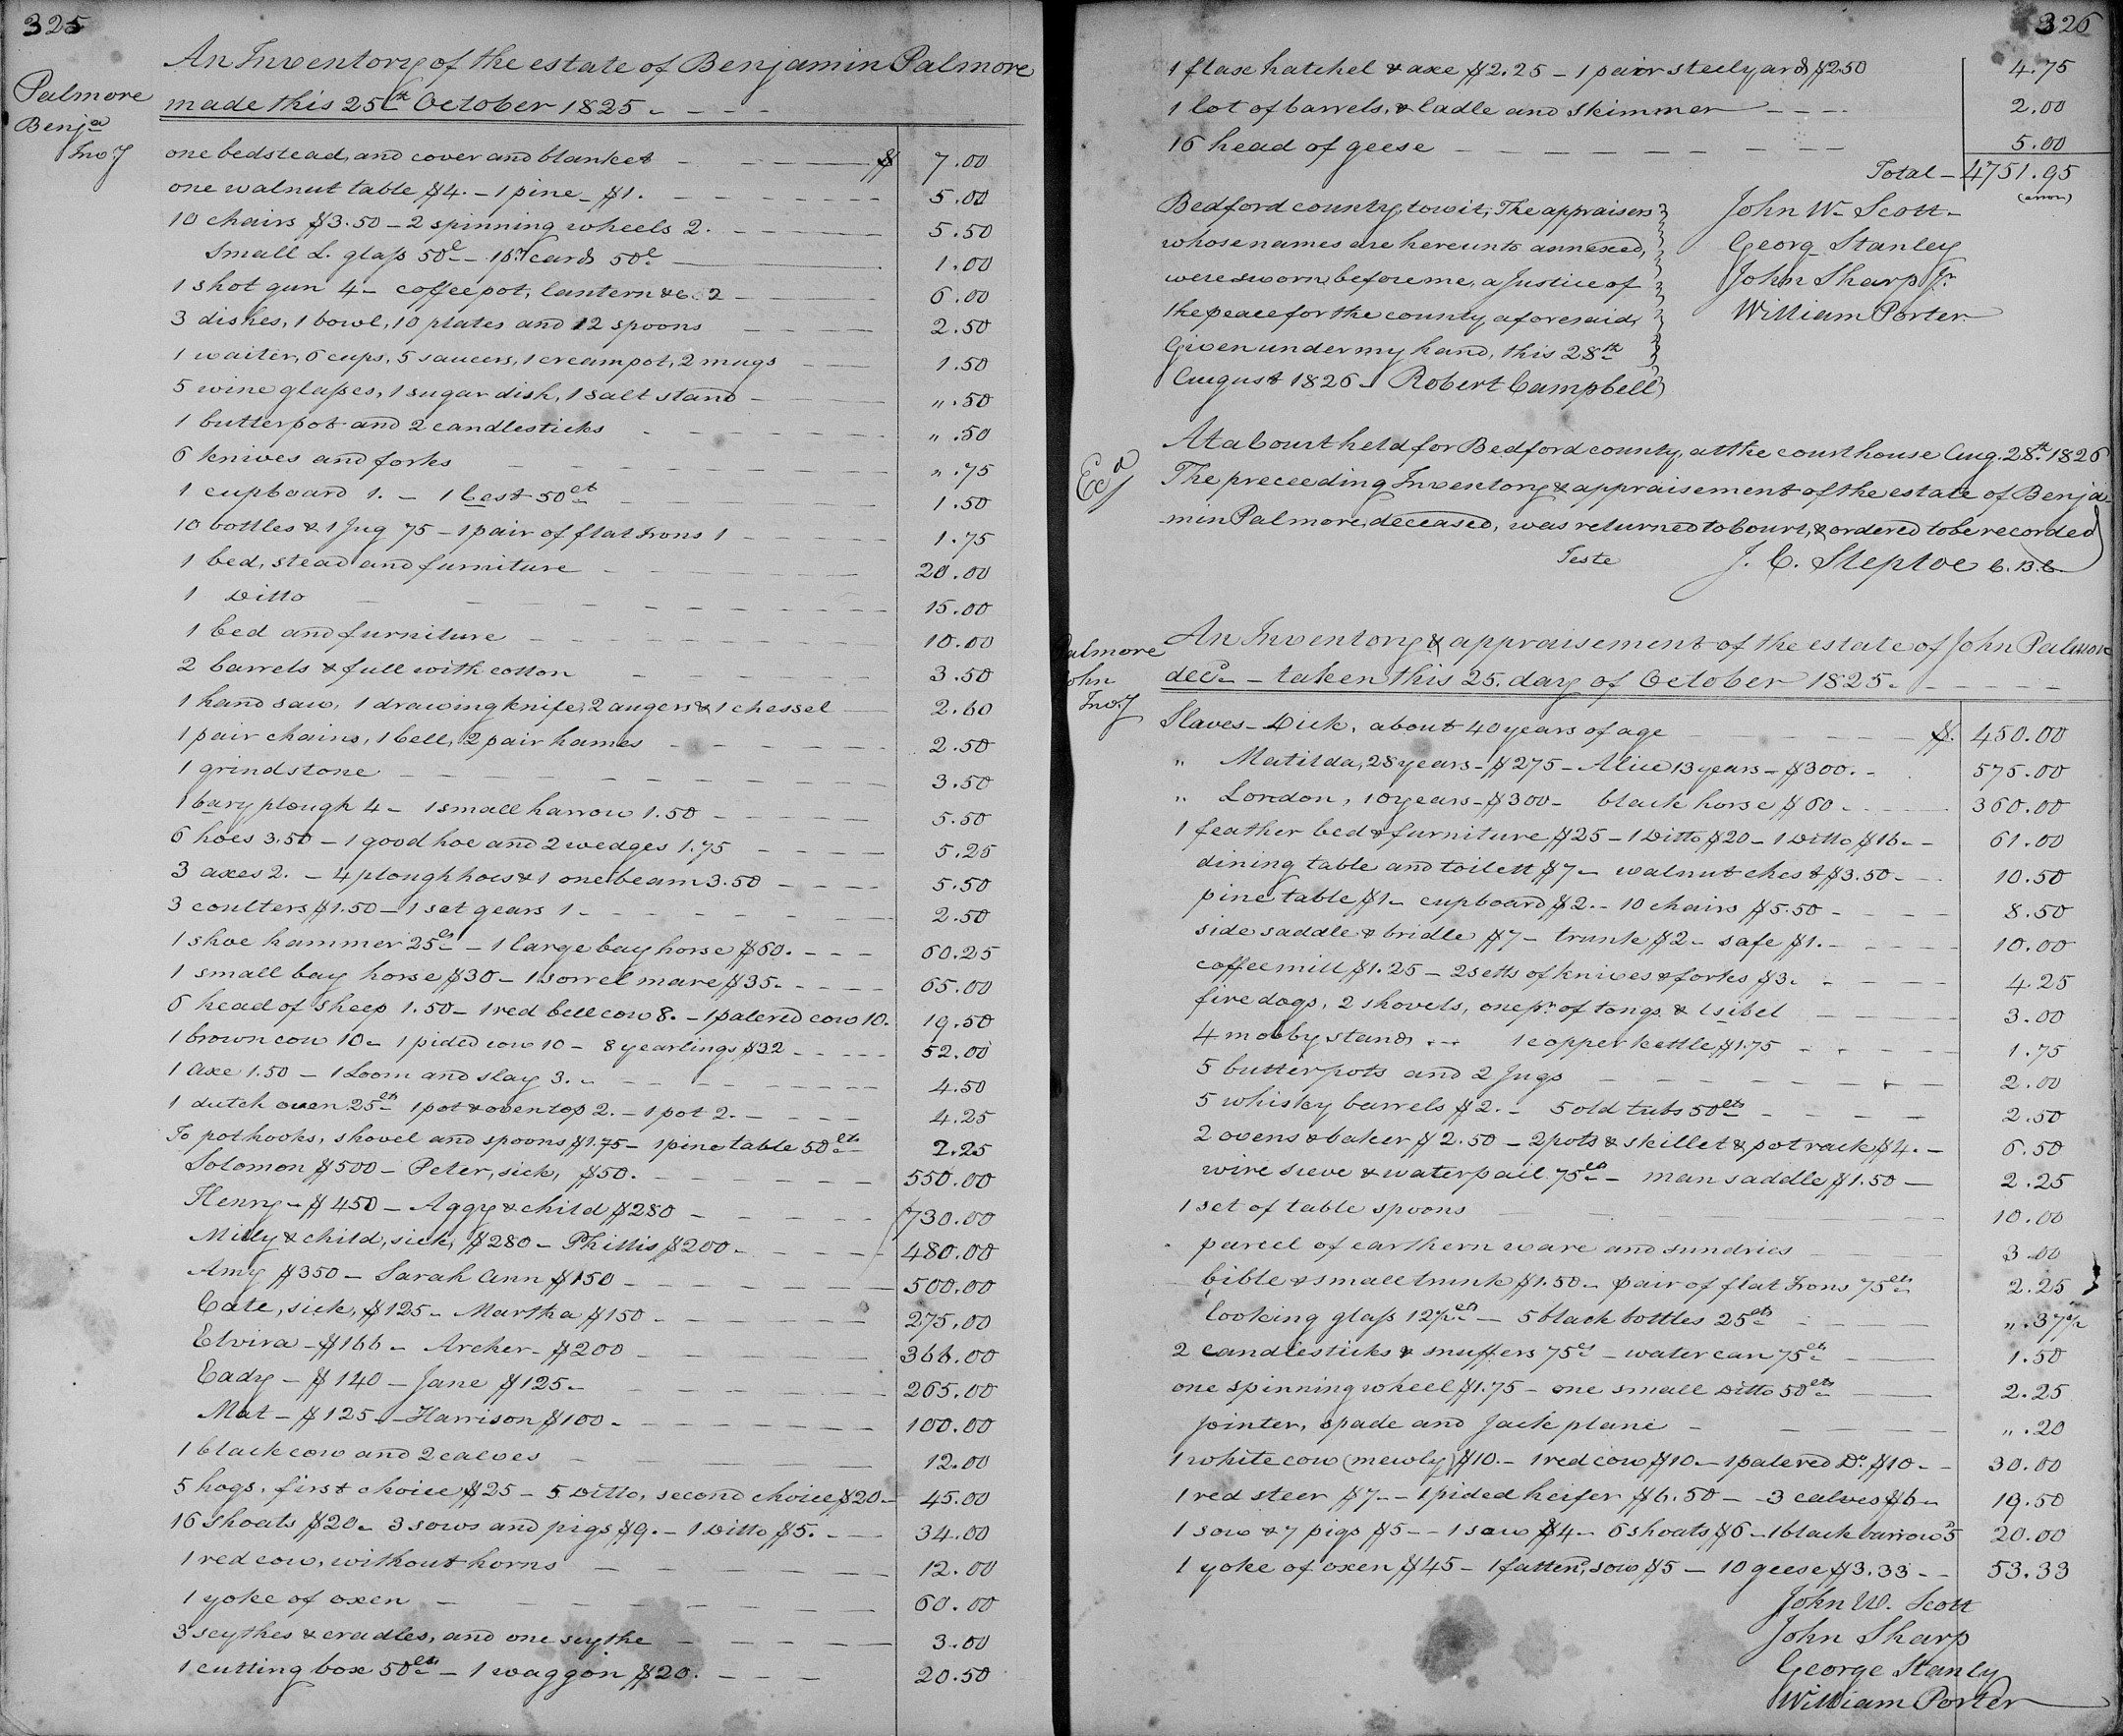 325
An Inventory of the estate of Benjamin Palmore
made this 25th October 1825 -
Palmore
Benja
Inv.y
one bedstead, and cover and blanket $ 7.00
one walnut table $4. - 1 pine - $1. 5.00
10 chairs $3.50 - 2 spinning wheels 2. 5.50
Small L. glass 50c - 1 pr. cards 50c 1.00
1 shot gun 4 - coffee pot, lantern &c. 2 6.00
3 dishes, 1 bowl, 10 plates and 12 spoons 2.50
1 waiter, 6 cups, 5 saucers, 1 creampot, 2 mugs 1.50
5 wine glasses, 1 sugar dish, 1 salt stand ".50
1 butterpot and 2 candlesticks ".50
6 knives and forks ".75
1 cupboard 1. - 1 50ct 1.50
10 bottles & 1 Jug 75 - 1 pair of flat Irons 1 1.75
1 bed, stead and furniture 20.00
1 Ditto 15.00
1 bed and furniture 10.00
2 barrels & full with cotton 3.50
1 hand saw, 1 drawing knife, 2 augers & 1 chessel 2.60
1 pair chains, 1 bell, 2 pair hames 2.50
1 grindstone 3.50
1 bary plough 4 - 1 small harrow 1.50 5.50
6 hoes 3.50 - 1 good hoe and 2 wedges 1.75 5.25
3 axes 2. - 4 plough hoes & 1 one beam 3.50 5.50
3 coulters $1.50 - 1 set gears 1 - 2.50
1 shoe hammer 25cts - 1 large bay horse $60. 60.25
1 small bay horse $30 - 1 sorrel mare $35. 65.00
6 head of sheep 1.50 - 1 red bell cow 8. - 1 pale red cow 10. 19.50
1 brown cow 10 - 1 pided cow 10 - 8 yearlings $32 52.00
1 axe 1.50 - 1 Loom and slay 3. 4.50
1 dutch oven 25cts 1 pot & oven top 2. - 1 pot 2. 4.25
To pothooks, shovel and spoons $1.75 - 1 pine table 50cts 2.25
Solomon $500 - Peter, sick, $50. 550.00
Henry - $450 - Aggy & child $280 730.00
Milly & child, sick, $280 - Phillis $200 480.00
Amy $350 - Sarah Ann $150 500.00
Cate, sick, $125 - Martha $150 275.00
Elvira - $166 - Archer - $200 366.00
Eady - $140 - Jane $125 - 265.00
Mat - $125 - Harrison $100 - 100.00
1 black cow and 2 calves 12.00
5 hogs, first choice $25 - 5 Ditto, second choice $20 - 45.00
16 Shoats $20 - 3 sows and pigs $9. - 1 Ditto $5. 34.00
1 red cow, without horns 12.00
1 yoke of oxen 60.00
3 scythes & cradles, and one scythe 3.00
1 cutting box 50cts - 1 waggon $20. 20.50
326
1 flax hatchel & axe $2.25 - 1 pair steelyards $2.50 4.75
1 lot of barrels, & ladle and skimmer 2.00
16 head of geese 5.00
Total - 4751.95
(error)
Bedford county, towit; The appraisers
whose names are hereunto annexed,
were sworn before me, a Justice of
the peace for the county aforesaid,
Given under my hand, this 28th
August 1826 - Robert Campbell
John Wm Scott -
Georg Stanley
John Sharp Jr.
William Porter
At a Court held for Bedford county, at the court house Aug. 28th. 1826
The preceeding Inventory & appraisement of the estate of Benja-
min Palmore, deceased, was returned to Court, & ordered to be recorded
Teste J. C. Steptoe C. B. C.
An Inventory & appraisement of the estate of John Palmore
decd. - taken this 25. day of October 1825.
Palmore
John
Inv.y
Slaves - Dick, about 40 years of age $ 450.00
" Matilda, 28 years - $275 - Alice 13 years - $300. 575.00
" London, 10 years - $300 - black horse $60 - 360.00
1 feather bed & furniture $25 - 1 Ditto $20 - 1 Ditto $16 - 61.00
dining table and toilett $7 - walnut chest $3.50 - 10.50
pine table $1 - cupboard $2. - 10 chairs $5.50 - 8.50
side saddle & bridle $7 - trunk $2 - safe $1. - 10.00
coffee mill $1.25 - 2 setts of knives & forks $3. 4.25
fire dogs, 2 shovels, one pr. of tongs & 3.00
4 mobby stands 1 copper kettle $1.75 1.75
5 butterpots and 2 Jugs 2.00
5 whisky barrels $2. - 5 old tubs 50cts 2.50
2 ovens & baker $2.50 - 2 pots & skillet & pot rack $4. - 6.50
wire sieve & water pail 75cts - man saddle $1.50 - 2.25
1 set of table spoons 10.00
parcel of earthern ware and sundries 3.00
bible & small trunk $1.50 - pair of flat Irons 75cts 2.25
looking glass 12½cts - 5 black bottles 25cts ".37½
2 candlesticks & snuffers 75cts - water can 75cts 1.50
one spinning wheel $1.75 - one small Ditto 50cts 2.25
Jointer, spade and Jack plane ".20
1 white cow (mewly) $10. - 1 red cow $10 - 1 pale red Do. $10 - 30.00
1 red steer $7 - 1 pided heifer $6.50 - 3 calves $6 - 19.50
1 sow & 7 pigs $5 - 1 sow $4 - 6 shoats $6 - 1 black barrow $5 20.00
1 yoke of oxen $45 - 1 fattend, sow $5 - 10 geese $3.33 - 53.33
John W. Scott
John Sharp
George Stanly
William Porter